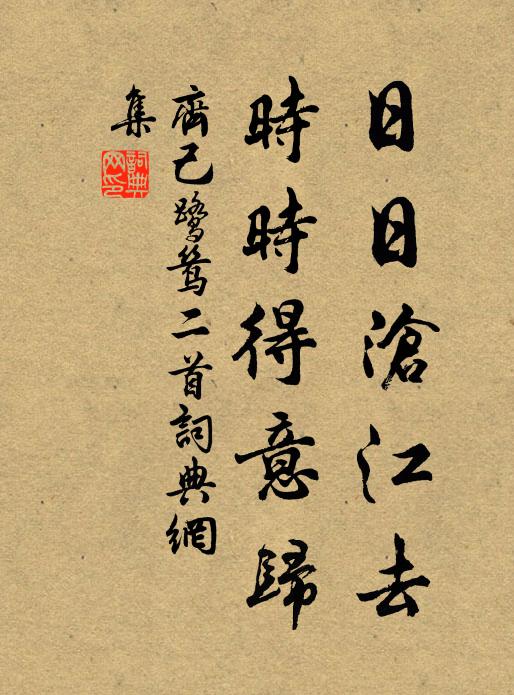 日日滄江去
時時得意歸
齊己鷺鷥二首詞典網
集
詞典
网印